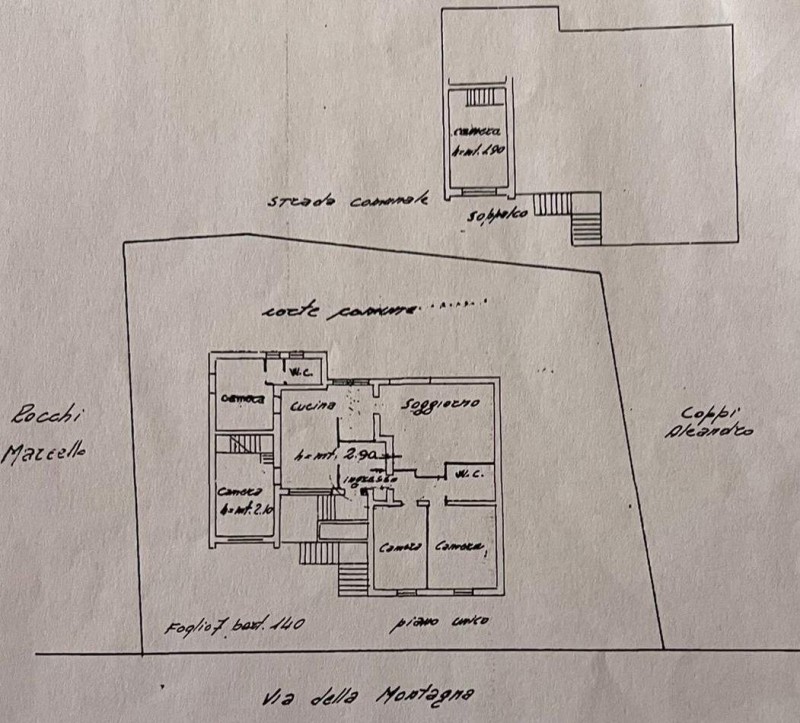 camera
h=mt. 2.90
strada comunale
soppalco
corte comune
W.C.
camera
Cucina
Soggiorno
Rocchi
Marcello
Coppi
Aleandro
h=mt. 2.90
ingresso
W.C.
Camera
h=mt. 2.10
Camera
Camera
Foglio 7 part. 140
piano unico
Via della Montagna